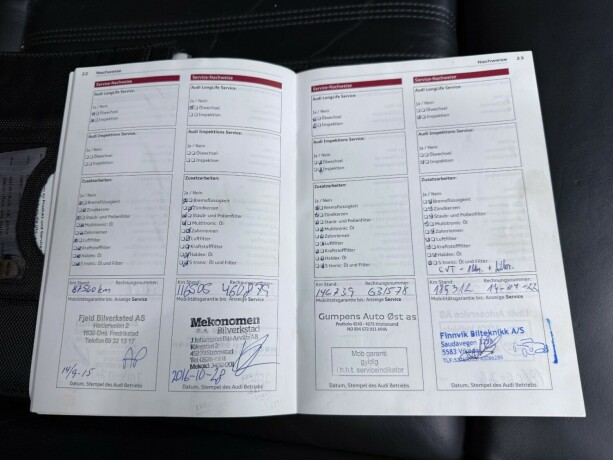 22 Nachweise
Service-Nachweise
Audi LongLife Service:
Ja / Nein
Ölwechsel
Inspektion
Audi Inspektions Service:
Ja / Nein
Ölwechsel
Inspektion
Zusatzarbeiten:
Ja / Nein
Bremsflüssigkeit
Zündkerzen
Staub- und Pollenfilter
Multitronic Öl
Zahnriemen
Luftfilter
Kraftstofffilter
Haldex Öl
S tronic Öl und Filter
Km Stand: Rechnungsnummer:
Mobilitätsgarantie bis: Anzeige Service
Fjeld Bilverksted AS
14/9-15
Datum, Stempel des Audi Betriebs
Service-Nachweise
Audi LongLife Service:
Ja / Nein
Ölwechsel
Inspektion
Audi Inspektions Service:
Ja / Nein
Ölwechsel
Inspektion
Zusatzarbeiten:
Ja / Nein
Bremsflüssigkeit
Zündkerzen
Staub- und Pollenfilter
Multitronic Öl
Zahnriemen
Luftfilter
Kraftstofffilter
Haldex Öl
S tronic Öl und Filter
Km Stand: Rechnungsnummer:
Mobilitätsgarantie bis: Anzeige Service
Mekonomen
Bilverksted
2016-10-28
Datum, Stempel des Audi Betriebs
Service-Nachweise
Audi LongLife Service:
Ja / Nein
Ölwechsel
Inspektion
Audi Inspektions Service:
Ja / Nein
Ölwechsel
Inspektion
Zusatzarbeiten:
Ja / Nein
Bremsflüssigkeit
Zündkerzen
Staub- und Pollenfilter
Multitronic Öl
Zahnriemen
Luftfilter
Kraftstofffilter
Haldex Öl
S tronic Öl und Filter
Km Stand: Rechnungsnummer:
146739 631578
Mobilitätsgarantie bis: Anzeige Service
Gumpens Auto Øst as
Mob garanti
gyldig
i h.h.t. serviceindikator
Datum, Stempel des Audi Betriebs
Nachweise 23
Service-Nachweise
Audi LongLife Service:
Ja / Nein
Ölwechsel
Inspektion
Audi Inspektions Service:
Ja / Nein
Ölwechsel
Inspektion
Zusatzarbeiten:
Ja / Nein
Bremsflüssigkeit
Zündkerzen
Staub- und Pollenfilter
Multitronic Öl
Zahnriemen
Luftfilter
Kraftstofffilter
Haldex Öl
S tronic Öl und Filter
Km Stand: Rechnungsnummer:
Mobilitätsgarantie bis: Anzeige Service
Finnvik Bilteknikk A/S
Saudavegen
5583
Datum, Stempel des Audi Betriebs